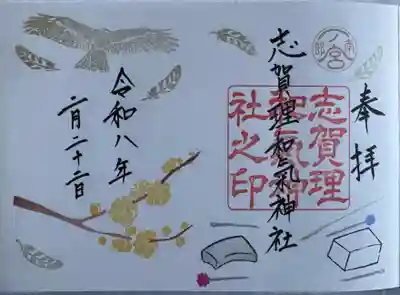 奉拝
南部一ノ宮
志賀理和氣神社之印
志賀理和氣神社
令和八年
二月二十二日